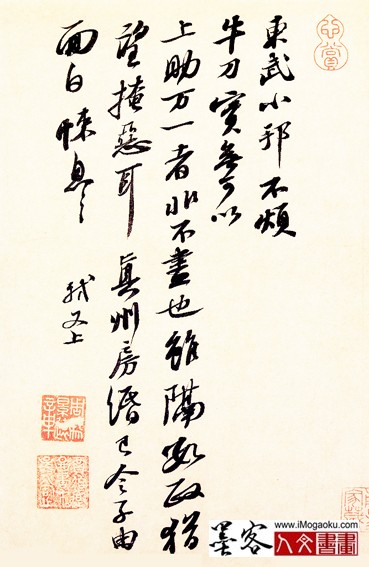 東武小邦不煩
牛刀實無可以
上助万一者非不盡也雖隔數政猶
望掩惡耳眞州房緡已令子由
面白悚息々
軾又上
墨客
www.iMogaoku.com
人文書畫